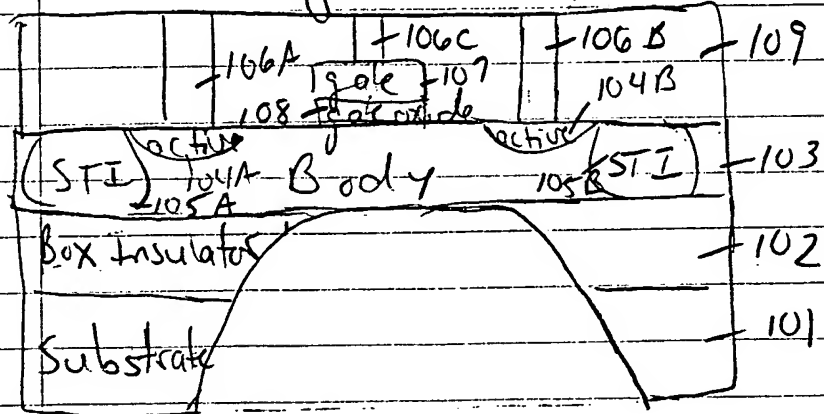 106C 106B 109
106A gate 107
108 gate oxide 104B
active active
STI 104A Body 105B STI 103
105A
Box Insulator 102
Substrate 101